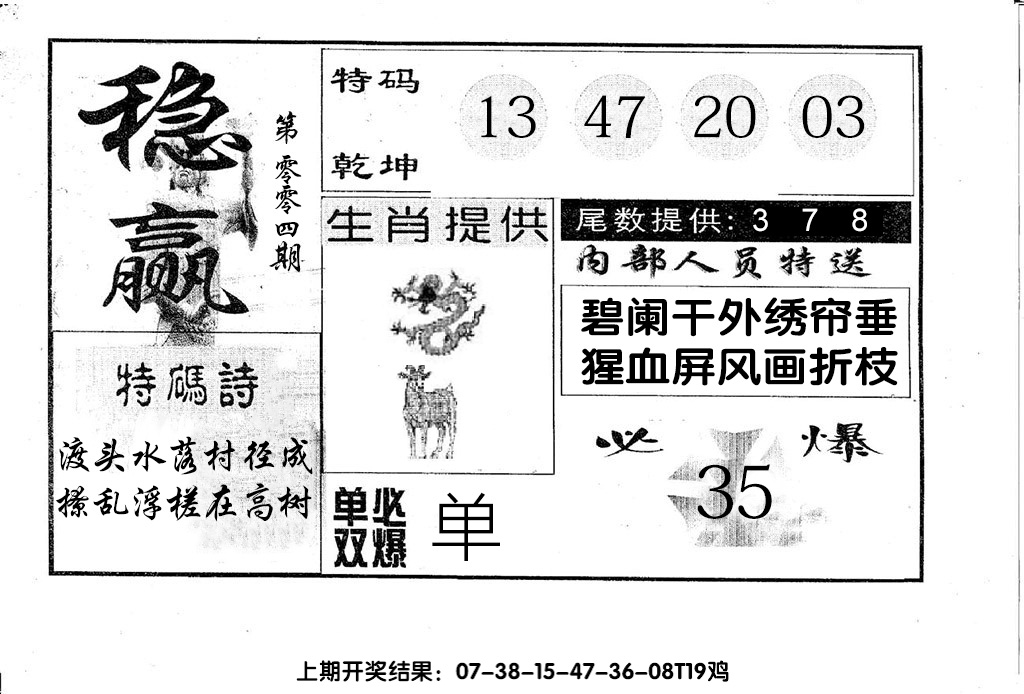 稳赢
第零零四期
特码诗
渡头水落村径成
撩乱浮槎在高树
特码
乾坤
13 47 20 03
生肖提供
单双
必爆
单
尾数提供: 3 7 8
内部人员特送
碧阑干外绣帘垂
猩血屏风画折枝
必爆
35
上期开奖结果：07-38-15-47-36-08T19鸡